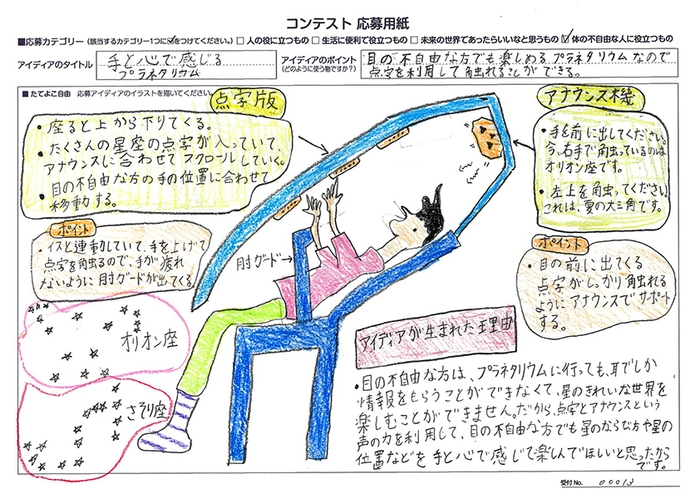 コンテスト 応募用紙
■応募カテゴリー（該当するカテゴリー1つに☑をつけてください。）□ 人の役に立つもの □ 生活に便利で役立つもの □ 未来の世界であったらいいなと思うもの ☑ 体の不自由な人に役立つもの
アイディアのタイトル
手と心で感じる
プラネタリウム
アイディアのポイント
（どのように使う物ですか？）
目の不自由な方でも楽しめるプラネタリウムなので
点字を利用して触れることができる。
■ たてよこ自由 応募アイディアのイラストを描いてください
点字版
・座ると上から下りてくる。
・たくさんの星座の点字が入っていて、
アナウンスに合わせてスクロールしていく。
・目の不自由な方の手の位置に合わせて
移動する。
ポイント
・イスと連動していて、手を上げて
点字を触るので、手が疲れ
ないように肘ガードが出てくる
肘ガード
アナウンス機
・手を前に出してください。
今、右手で触っているのは
オリオン座です。
・左上を触ってください。
これは、夏の大三角です。
ポイント
・目の前に出てくる
点字がしっかり触れる
ようにアナウンスでサポート
する。
オリオン座
さそり座
アイディアが生まれた理由
・目の不自由な方は、プラネタリウムに行っても、耳でしか
情報をもらうことができなくて、星のきれいな世界を
楽しむことができません。だから、点字とアナウンスという
声の力を利用して、目の不自由な方でも星のならび方や星の
位置などを手と心で感じて楽しんでほしいと思ったから
です。
受付No. 00013